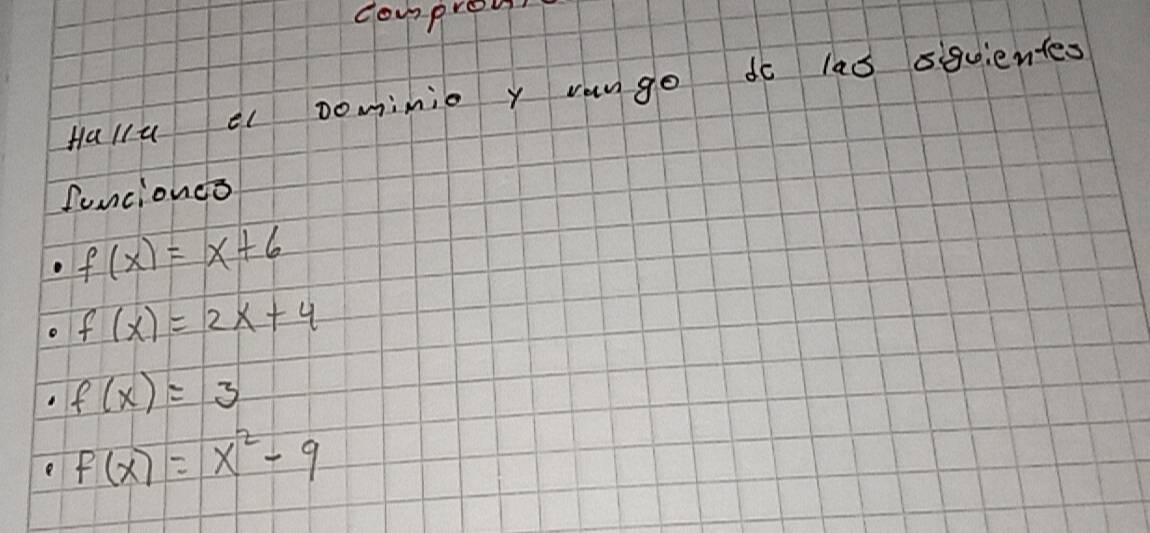 Halla el Dominio y rango de las siguientes
funciones
• f(x) = x+6
• f(x) = 2x+4
• f(x) = 3
• f(x) = x² - 9